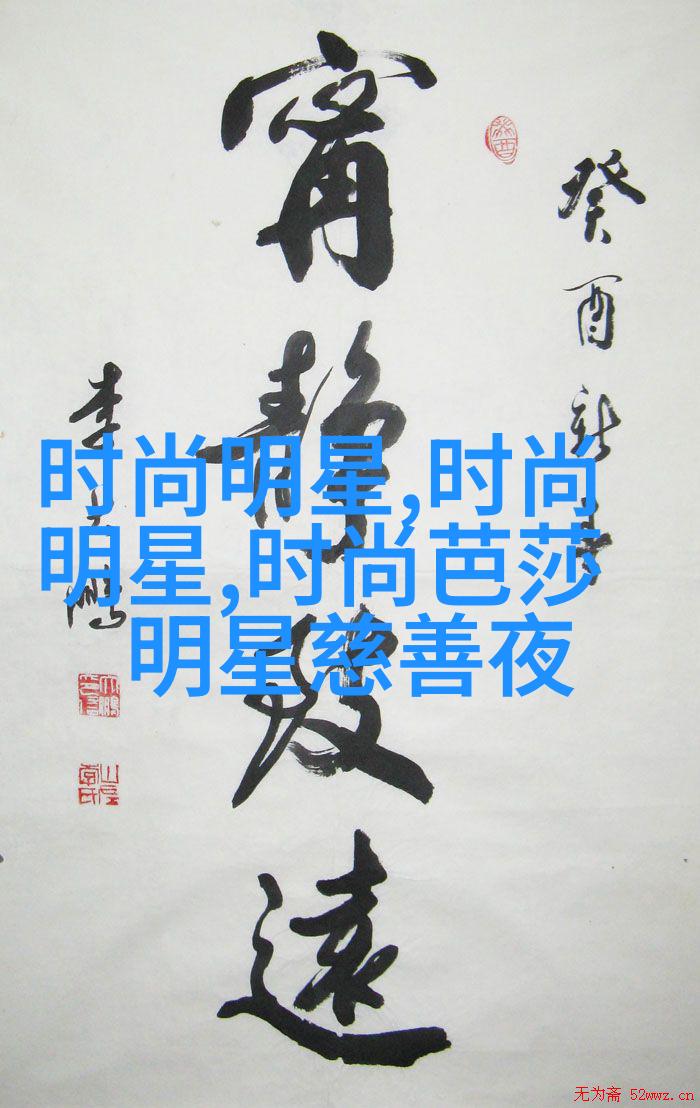 癸酉新春
甯靜致遠
李大鵬
时尚明星,时尚
明星,时尚芭莎
明星慈善夜
无为斋 52wwz.cn